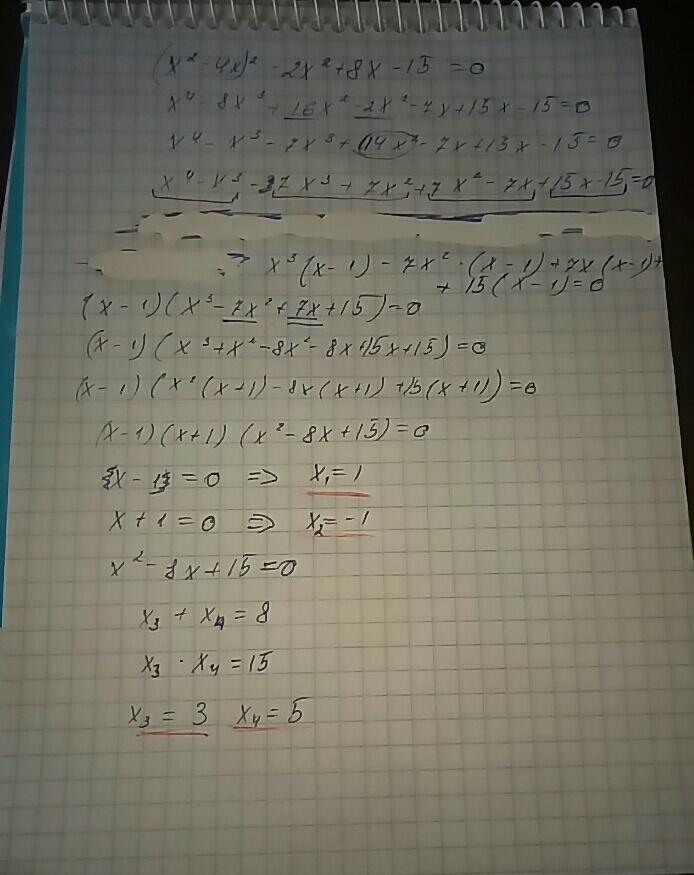 (x² - 4x)² - 2x² + 8x - 15 = 0
x⁴ - 8x³ + 16x² - 2x² - 7x + 15x - 15 = 0
x⁴ - x³ - 7x³ + 14x² - 7x + 15x - 15 = 0
x⁴ - x³ - 7x³ + 7x² + 7x² - 7x + 15x - 15 = 0
=> x³(x-1) - 7x² · (x-1) + 7x(x-1) +
+ 15(x-1) = 0
(x-1)(x³ - 7x² + 7x + 15) = 0
(x-1)(x³ + x² - 8x² - 8x + 15x + 15) = 0
(x-1)(x²(x+1) - 8x(x+1) + 15(x+1)) = 0
(x-1)(x+1)(x² - 8x + 15) = 0
x - 1 = 0 => x₁ = 1
x + 1 = 0 => x₂ = -1
x² - 8x + 15 = 0
x₃ + x₄ = 8
x₃ · x₄ = 15
x₃ = 3 x₄ = 5